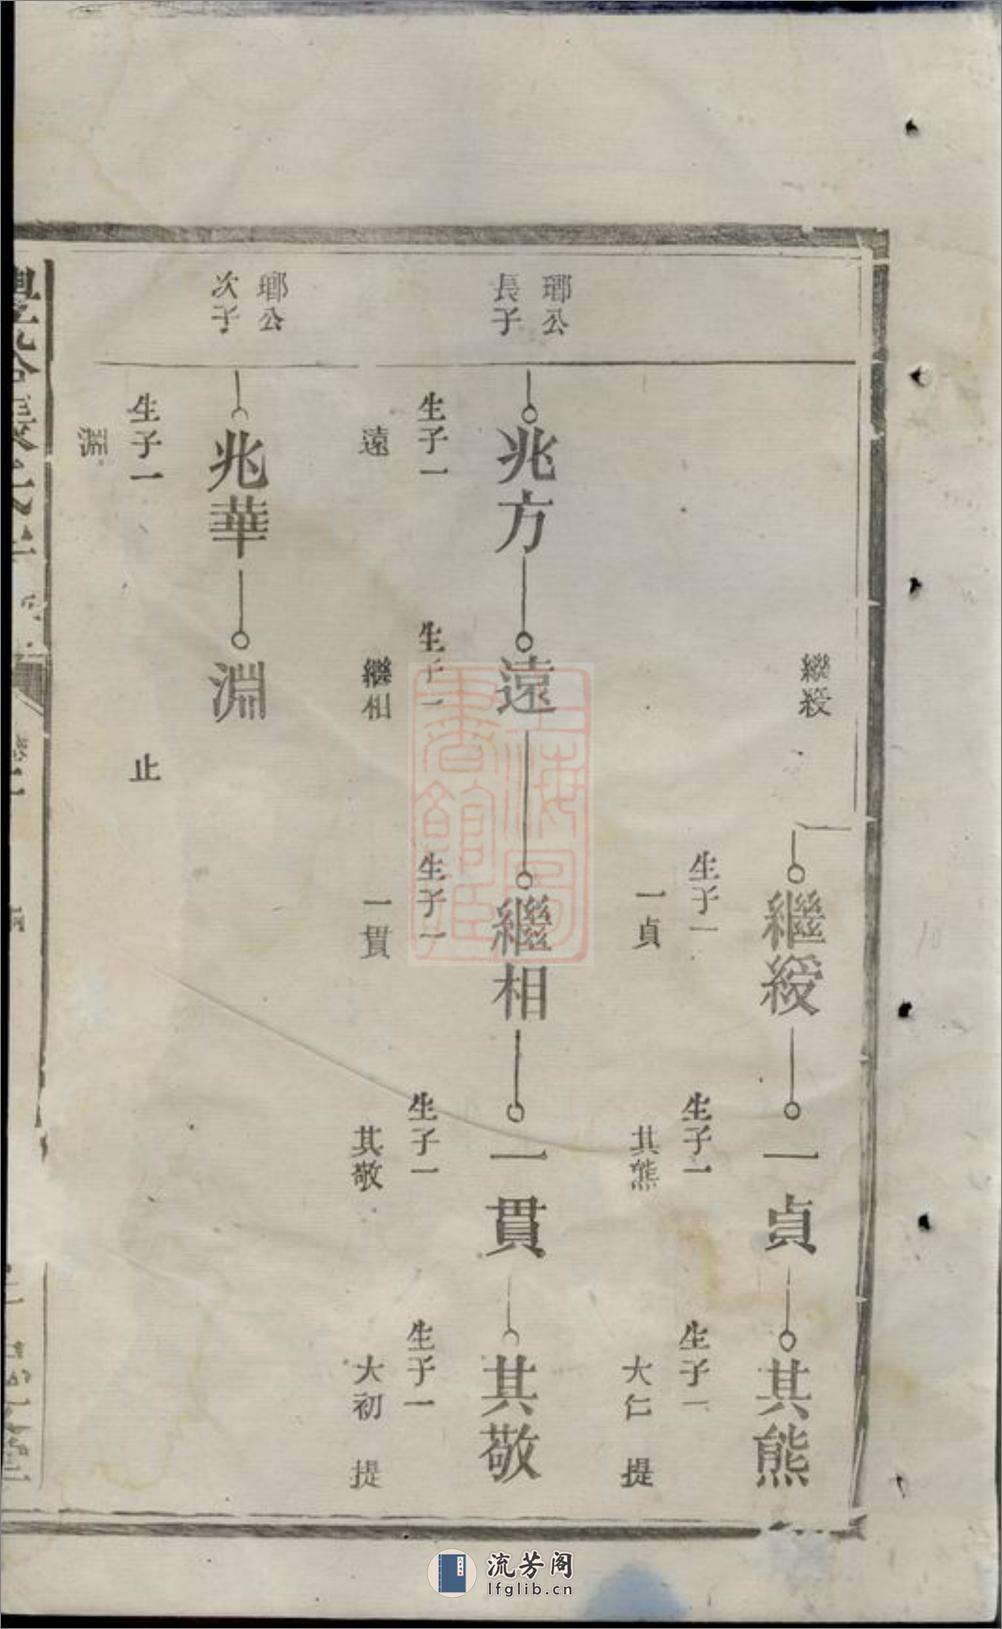 繼綬
繼綬
生子一
一貞
一貞
生子一
其熊
其熊
生子一
大仁 提
瑯公
長子
兆方
生子一
遠
遠
生子一
繼相
繼相
生子一
一貫
一貫
生子一
其敬
其敬
生子一
大初 提
瑯公
次子
兆華
生子一
淵
止
張氏
上海圖
書館藏
流芳阁
lfglib.cn